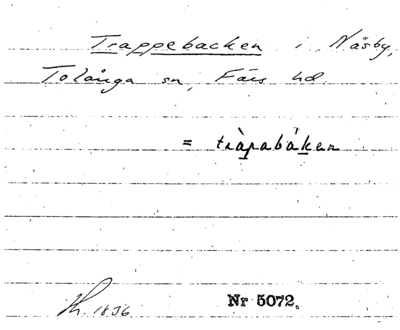 Trappebacken i Näsby,
Tolånga sn, Färs hd.
= tràpabáken
1836.
Nr 5072.